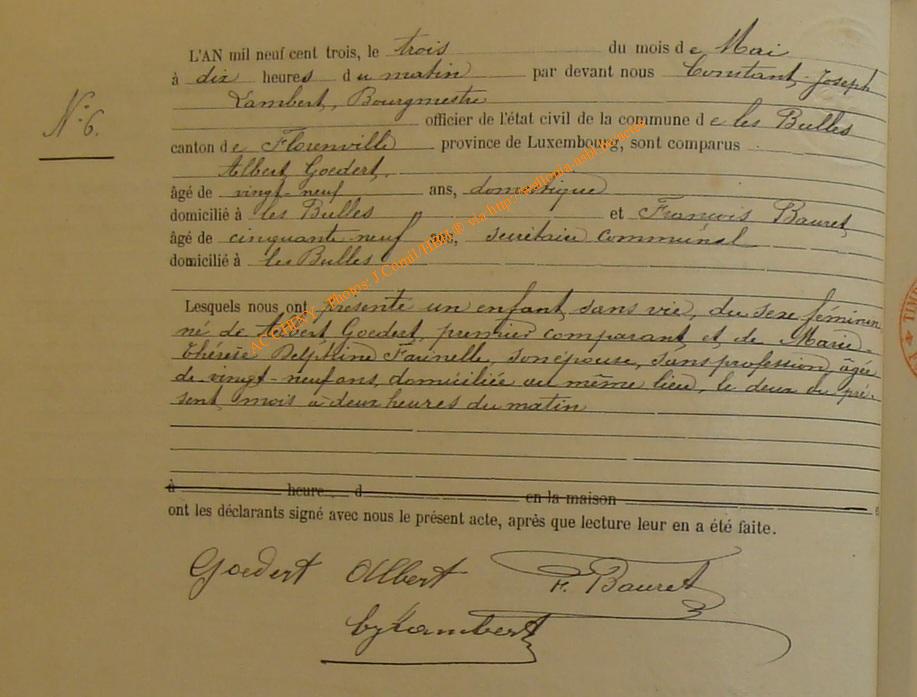 L'AN mil neuf cent trois, le trois du mois de Mai
à dix heures du matin par devant nous Constant, Joseph
Lambert, Bourgmestre
N° 6.
officier de l'état civil de la commune de les Bulles
canton de Florenville province de Luxembourg, sont comparus
Albert Goedert,
âgé de vingt-neuf ans, domestique
domicilié à les Bulles et François Bauret,
âgé de cinquante-neuf ans, secrétaire communal
domicilié à les Bulles
Lesquels nous ont présenté un enfant sans vie, du sexe féminin
né de Albert Goedert, premier comparant et de Marie-
Thérèse Delphine Farinelle, son épouse, sans profession, âgée
de vingt-neuf ans, domiciliée au même lieu, le deux du pré-
sent mois à deux heures du matin
à heure d en la maison
ont les déclarants signé avec nous le présent acte, après que lecture leur en a été faite.
Goedert Albert F. Bauret
Lambert
ACCHEVY - Photos: J.Cornil/HB01® via http://wallonia-asbl.